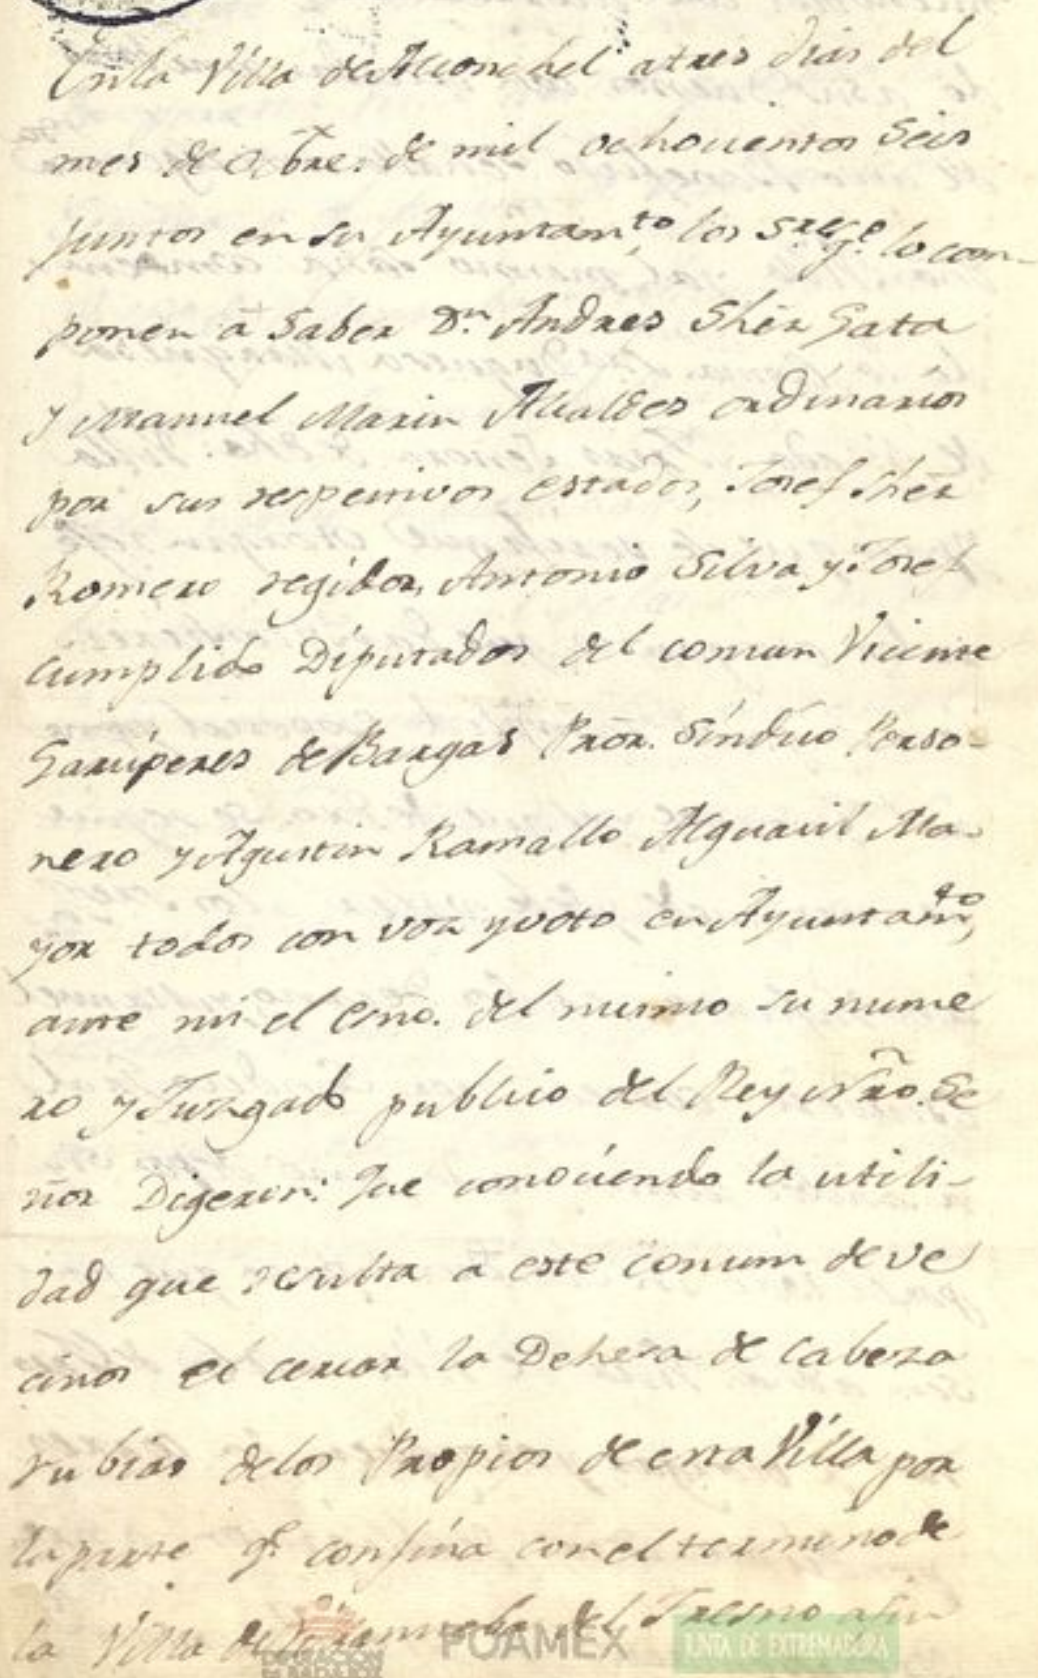 En la Villa de Alconchel a tres dias del
mes de Octbre. de mil ochocientos seis
juntos en su Ayuntamto. los Sres. qe. lo com-
ponen â saber Dn. Andres Shêz Gata
y Manuel Marin Alcaldes ordinarios
por sus respectivos estados, Josef Shêz
Romero regidor, Antonio Silva y Josef
Cumplido Diputados del comun Vicente
Garcíperes de Bargas Prôr. Síndico Perso-
nero y Agustin Ramallo Alguacil Ma-
yor todos con voz y voto en Ayuntamto,
ante mi el Esño. del mismo su nume
ro y Juzgado publico del Rey nrô. Se
ñor Digeron: Que conociendo la utili-
dad que resulta a este comun de ve
cinos el cercar la Dehesa de Cabeza
rubias de los Propios de esta Villa por
la parte qe. confína con el termino de
la Villa de del Fresno a fin
DIPUTACIÓN
DE BADAJOZ
FOAMEX
JUNTA DE EXTREMADURA